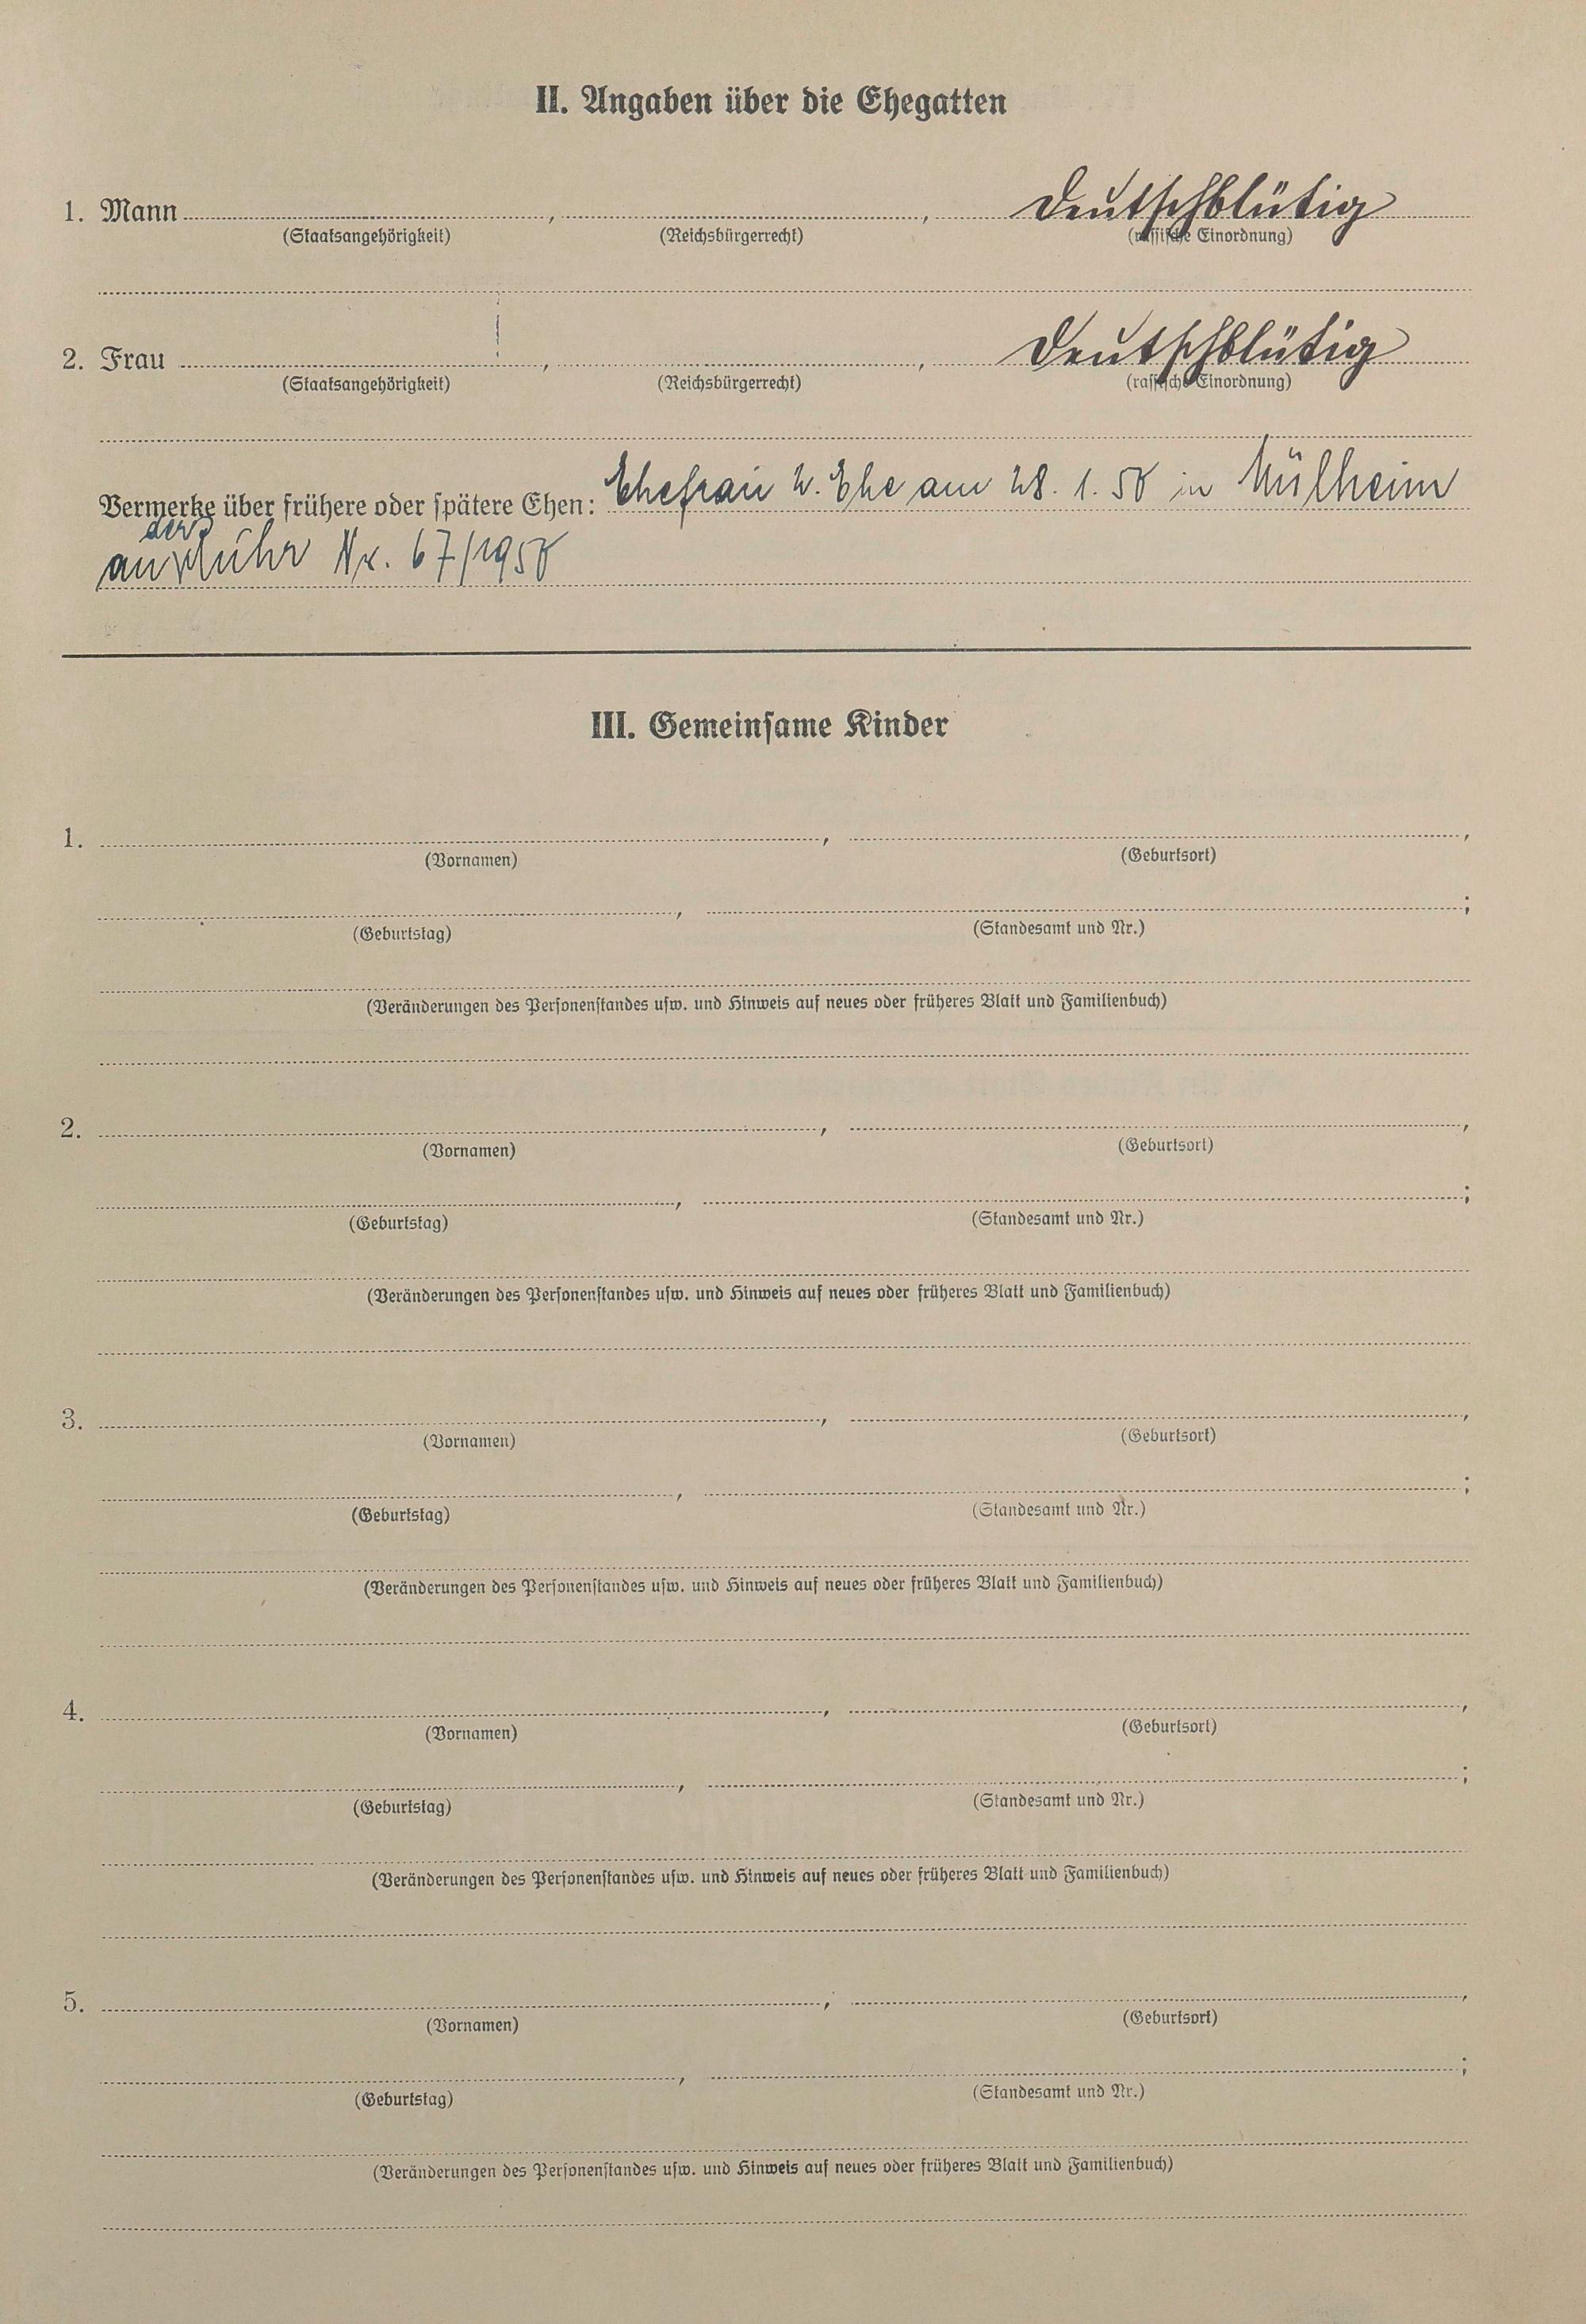 II. Angaben über die Ehegatten
1. Mann , , deutschblütig
(Staatsangehörigkeit) (Reichsbürgerrecht) (rassische Einordnung)
2. Frau , , deutschblütig
(Staatsangehörigkeit) (Reichsbürgerrecht) (rassische Einordnung)
Vermerke über frühere oder spätere Ehen: Ehefrau 2. Ehe am 28. 1. 58 in Mülheim
der
an Ruhr Nr. 67/1958
III. Gemeinsame Kinder
1. , ,
(Vornamen) (Geburtsort)
, ;
(Geburtstag) (Standesamt und Nr.)
(Veränderungen des Personenstandes usw. und Hinweis auf neues oder früheres Blatt und Familienbuch)
2. , ,
(Vornamen) (Geburtsort)
, ;
(Geburtstag) (Standesamt und Nr.)
(Veränderungen des Personenstandes usw. und Hinweis auf neues oder früheres Blatt und Familienbuch)
3. , ,
(Vornamen) (Geburtsort)
, ;
(Geburtstag) (Standesamt und Nr.)
(Veränderungen des Personenstandes usw. und Hinweis auf neues oder früheres Blatt und Familienbuch)
4. , ,
(Vornamen) (Geburtsort)
, ;
(Geburtstag) (Standesamt und Nr.)
(Veränderungen des Personenstandes usw. und Hinweis auf neues oder früheres Blatt und Familienbuch)
5. , ,
(Vornamen) (Geburtsort)
, ;
(Geburtstag) (Standesamt und Nr.)
(Veränderungen des Personenstandes usw. und Hinweis auf neues oder früheres Blatt und Familienbuch)